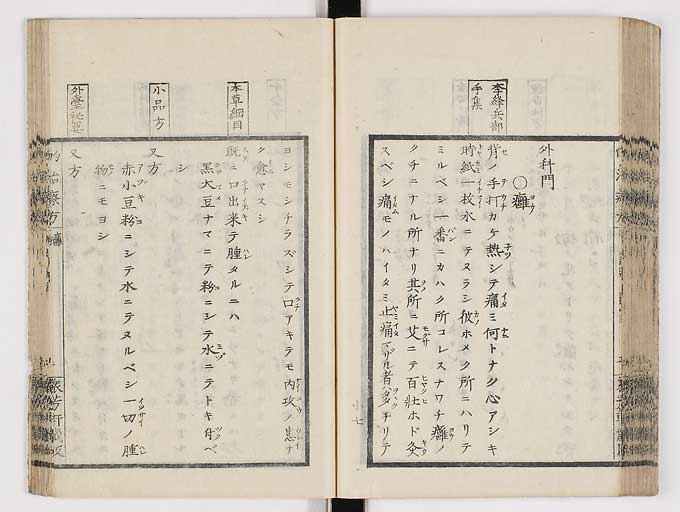 李絳兵部
手集
外科門
○癰ヨウ
背ノ手打カケ熱シテ痛ミ何トナク心アシキ
時紙一枚水ニテヌラシ彼ホメク所ニハリテ
ミルベシ一番ニカハク所コレスナワチ癰ノ
クチニナル所ナリ其所ニ艾ニテ百壮ホド灸
スベシ痛モノハイタミ止痛マザル者ハタチリテ
小七
ヨシモシチラズシテ口アキテモ内攻ノ患ナ
ク愈マスシ
本草綱目
既ニ口出来テ腫タルニハ
黒大豆ナマニテ粉ニシテ水ニテトキ付ベ
シ
小品方
又方
赤小豆粉ニシテ水ニテヌルベシ一切ノ腫
物ニモヨシ
外臺秘要
又方